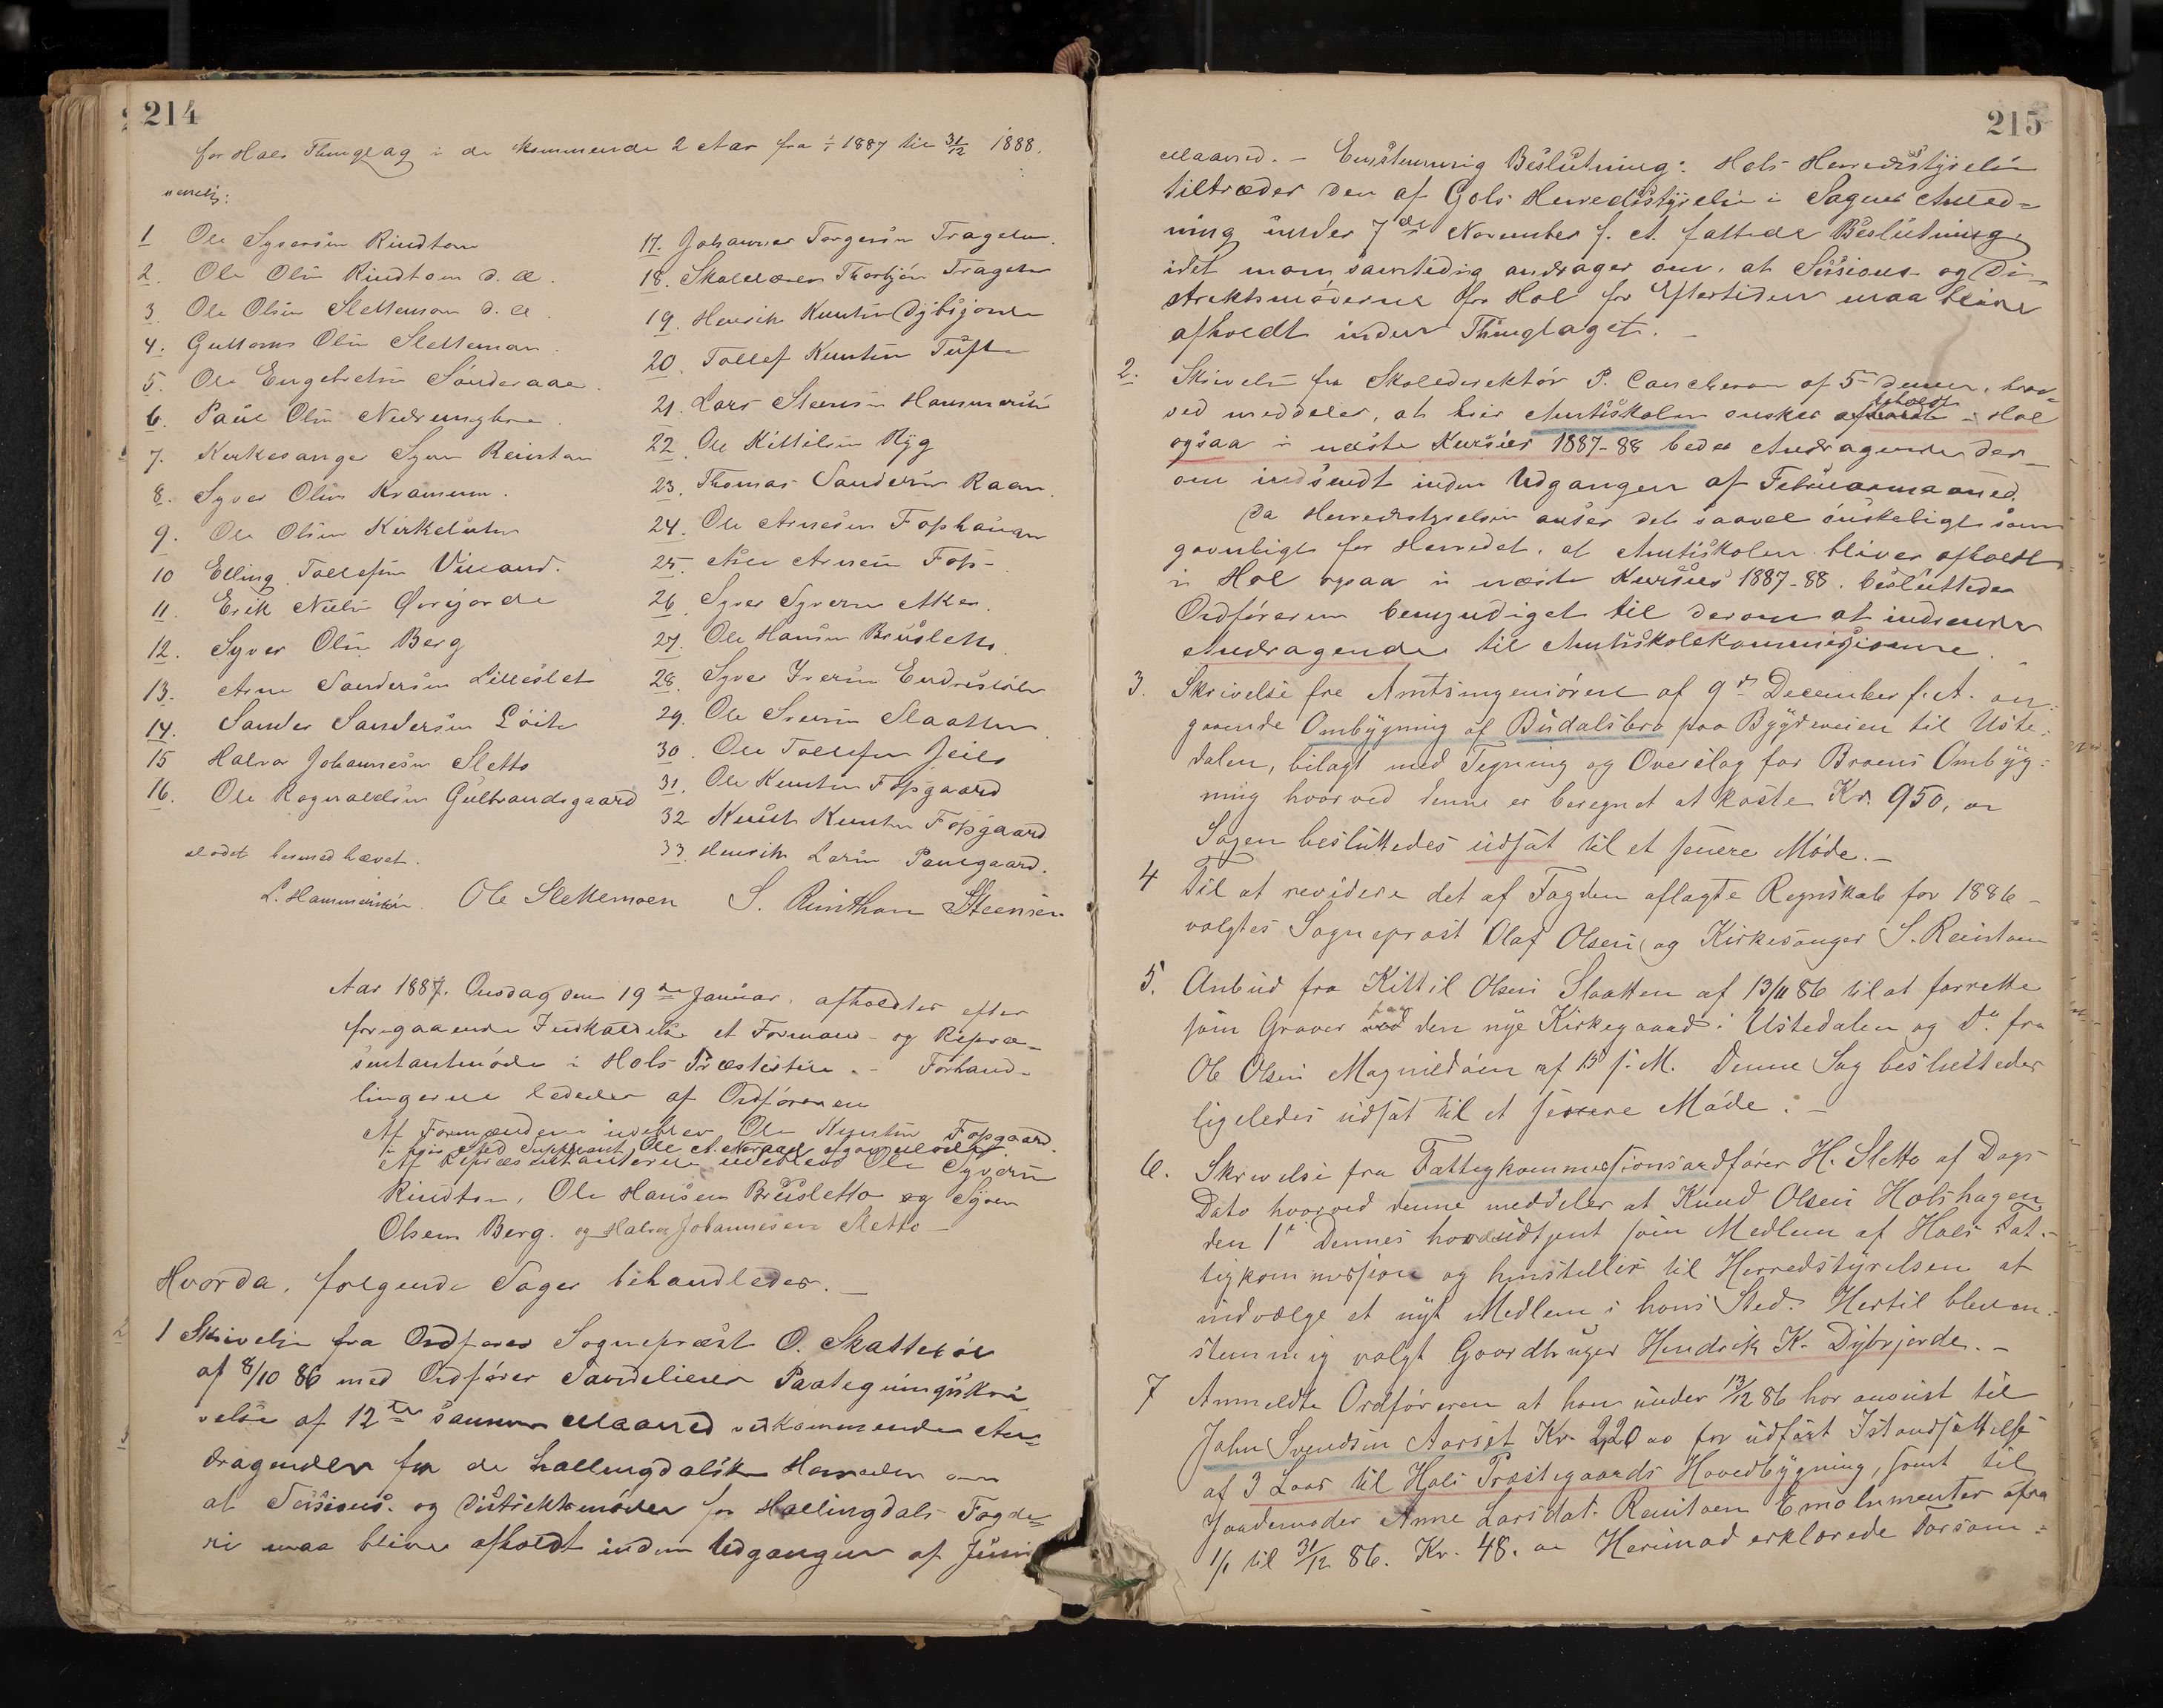 214
for Hols Thinglag i de kommende 2 Aar fra 1/1 1887 til 31/12 1888.
nemlig:
1 Ole Syversen Rindton
2. Ole Olsen Rindtom d. æ.
3 Ole Olsen Slettemoen d. æ.
4. Guttorm Olsen Sletteman
5. Ole Engebretsen Sønderaae.
6. Paul Olsen
7. Kirkesanger Syver Reinton
8. Syver Olsen
9. Ole Olsen
10 Elling Tollefsen Villand.
11. Erik Nielsen Øvrejorde
12. Syver Olsen Berg
13. Arne Sandersen Lilleslet
14. Sander Sandersen Löite
15 Halvor Johannesen Sletto
16. Ole Ragnvaldsen Gulbrandsgaard
17. Johannes Torgersen Tragethon.
18. Skolelærer Thorbjørn Tragethon
19. Henrik Knutsen Dybsjorde
20. Tollef Knutsen Tufte
21. Lars Steensen Hammersbøen
22. Ole Kittilsen Ryg
23. Thomas Sandersen Raaen.
24. Ole Arnesen Foshaugen
25. Asle Arnesen Fos-
26. Syver Syversen Aker.
27. Ole Hansen Brusletto.
28. Syver Iversen Endrestøl
29. Ole Svensen Slaatten.
30. Ole Tollefsen Jeilo
31. Ole Knutsen Fosgaard
32 Knut Knutsen Fosgaard
33. Henrik Larsen Paulgaard.
Mødet hermed hævet.
L. Hammersbøen. Ole Slettemoen S. Reinthon Steensen
Aar 1887. Onsdag den 19de Januar. afholdtes efter
foregaaende Indkaldelse et Formand- og Repræ-
sentantmøde i Hols Præstestue. - Forhand-
lingerne lededes af Ordføreren
Af Formændene udeblev Ole Knutsen Fosgaard.
Suppleant Ole A.
Af Repræsentanterne udeblev Ole Syversen
Rindton, Ole Hansen Brusletto og Syver
Olsen Berg. og Halvor Johannesen Sletto -
Hvorda, følgende Sager behandledes. -
1 Skrivelse fra Ordfører Sognepræst O. Skattebøl
af 8/10 86 med Ordfører Paategningsskri-
velse af 12te samme Maaned vedkommende An-
dragender fra de hallingdalske Herreder om
at Sessions- og Distriktsmøder for Hallingdals Fogde-
ri maa blive afholdt inden Udgangen af Juni
215
Maaned. - Enstemmig Beslutning: Hols Herredsstyrelse
tiltræder den af Gols Herredsstyrelse i Sagens Anled-
ning under 7de November f. A. fattede Beslutning
idet man samtidig andrager om, at Sessions- og Di-
striktsmøderne for Hol for Eftertiden maa blive
afholdt inden Thinglaget. -
2. Skrivelse fra Skoledirektør P. Cauchveron af 5 dennes, hvor-
ved meddeles, at hvis Amtsskolen ønskes afholdt i Hol
ogsaa i næste Kursus 1887-88 bedes Andragende der-
om indsendt inden Udgangen af Februarmaaned.
Da Herredsstyrelsen anser det saavel ønskeligt som
gavnligt for Herredet, at Amtsskolen bliver afholdt
i Hol ogsaa i næste Kursus 1887-88. besluttedes
Ordføreren bemyndiget til derom at indsende
Andragende til Amtsskolekommissionene.
3. Skrivelse fra Amtsingeniøren af 9de December f. A. an-
gaaende Ombygning af Budalsbro paa Bygdeveien til Uste-
dalen, bilagt med Tegning og Overslag for Broens Ombyg-
ning hvorved denne er beregnet at koste Kr. 950, oo
Sagen besluttedes udsat til et senere Møde. -
4 Til at revidere det af Fogden aflagte Regnskab for 1886 -
valgtes Sogneprest Olaf Olsen og Kirkesanger S. Reinton
5. Anbud fra Kittil Olsen Slaatten af 13/11 86 til at forrette
som Graver paa den nye Kirkegaard i Ustedalen og Do fra
Ole Olsen Magnildøen af 13 f. M. Denne Sag besluttedes
ligeledes udsat til et senere Møde. -
6. Skrivelse fra Fattigkommissionsordfører H. Sletto af Dags
Dato hvorved denne meddeler at Knud Olsen Holshagen
den 1ste Dennes havde udtjent som Medlem af Hols Fat-
tigkommission og henstilles til Herredsstyrelsen at
indvælge et nyt Medlem i hans Sted. Hertil blev en-
stemmig valgt Gaardbruger Hendrik K. Dybsjorde. -
7 Anmeldte Ordføreren at han under 13/12 86 har anvist til
John Svendsen Aarset Kr. 220 oo for udført Istandsættelse
af 3 Laas til Hols Præstegaards Hovedbygning, samt til
Jordemoder Anne Larsdat. Reintoen Emolumenter fra
1/1 til 31/12 86. Kr. 48. oo Herimod erklærede Forsam-